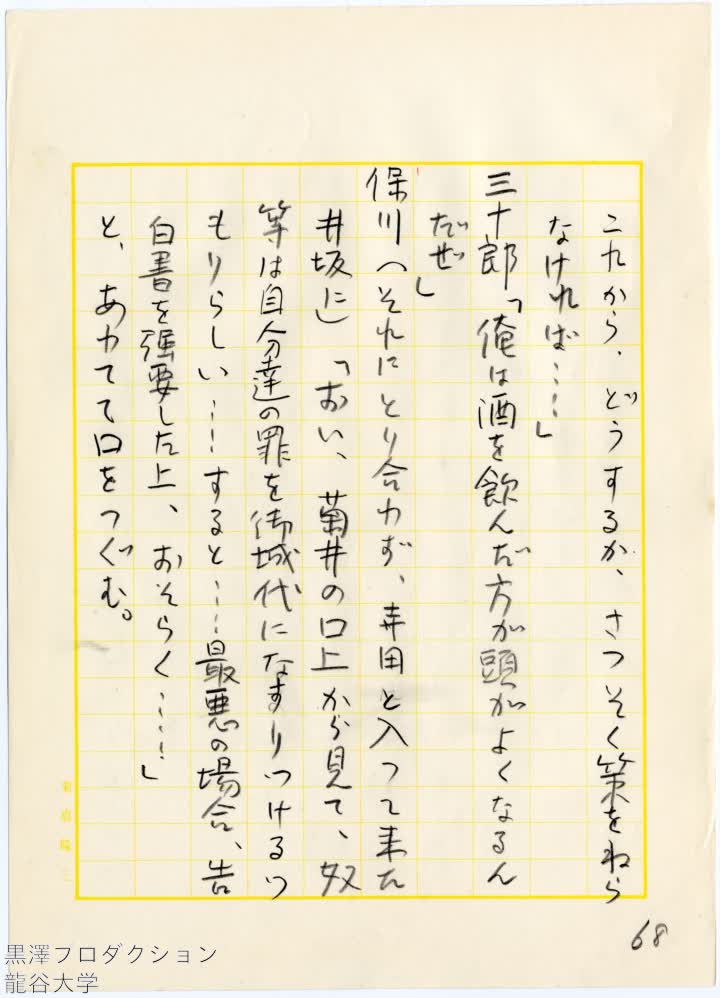 これから、どうするか、さつそく策をねら
なければ……」
三十郎「俺は酒を飲んだ方が頭がよくなるん
だぜ」
保川（それにとり合わず、寺田と入つて来た
井坂に）「おい、菊井の口上から見て、奴
等は自分達の罪を御城代になすりつけるつ
もりらしい……すると……最悪の場合、告
白書を強要した上、おそらく……」
と、あわてて口をつぐむ。
68
黒澤プロダクション
龍谷大学